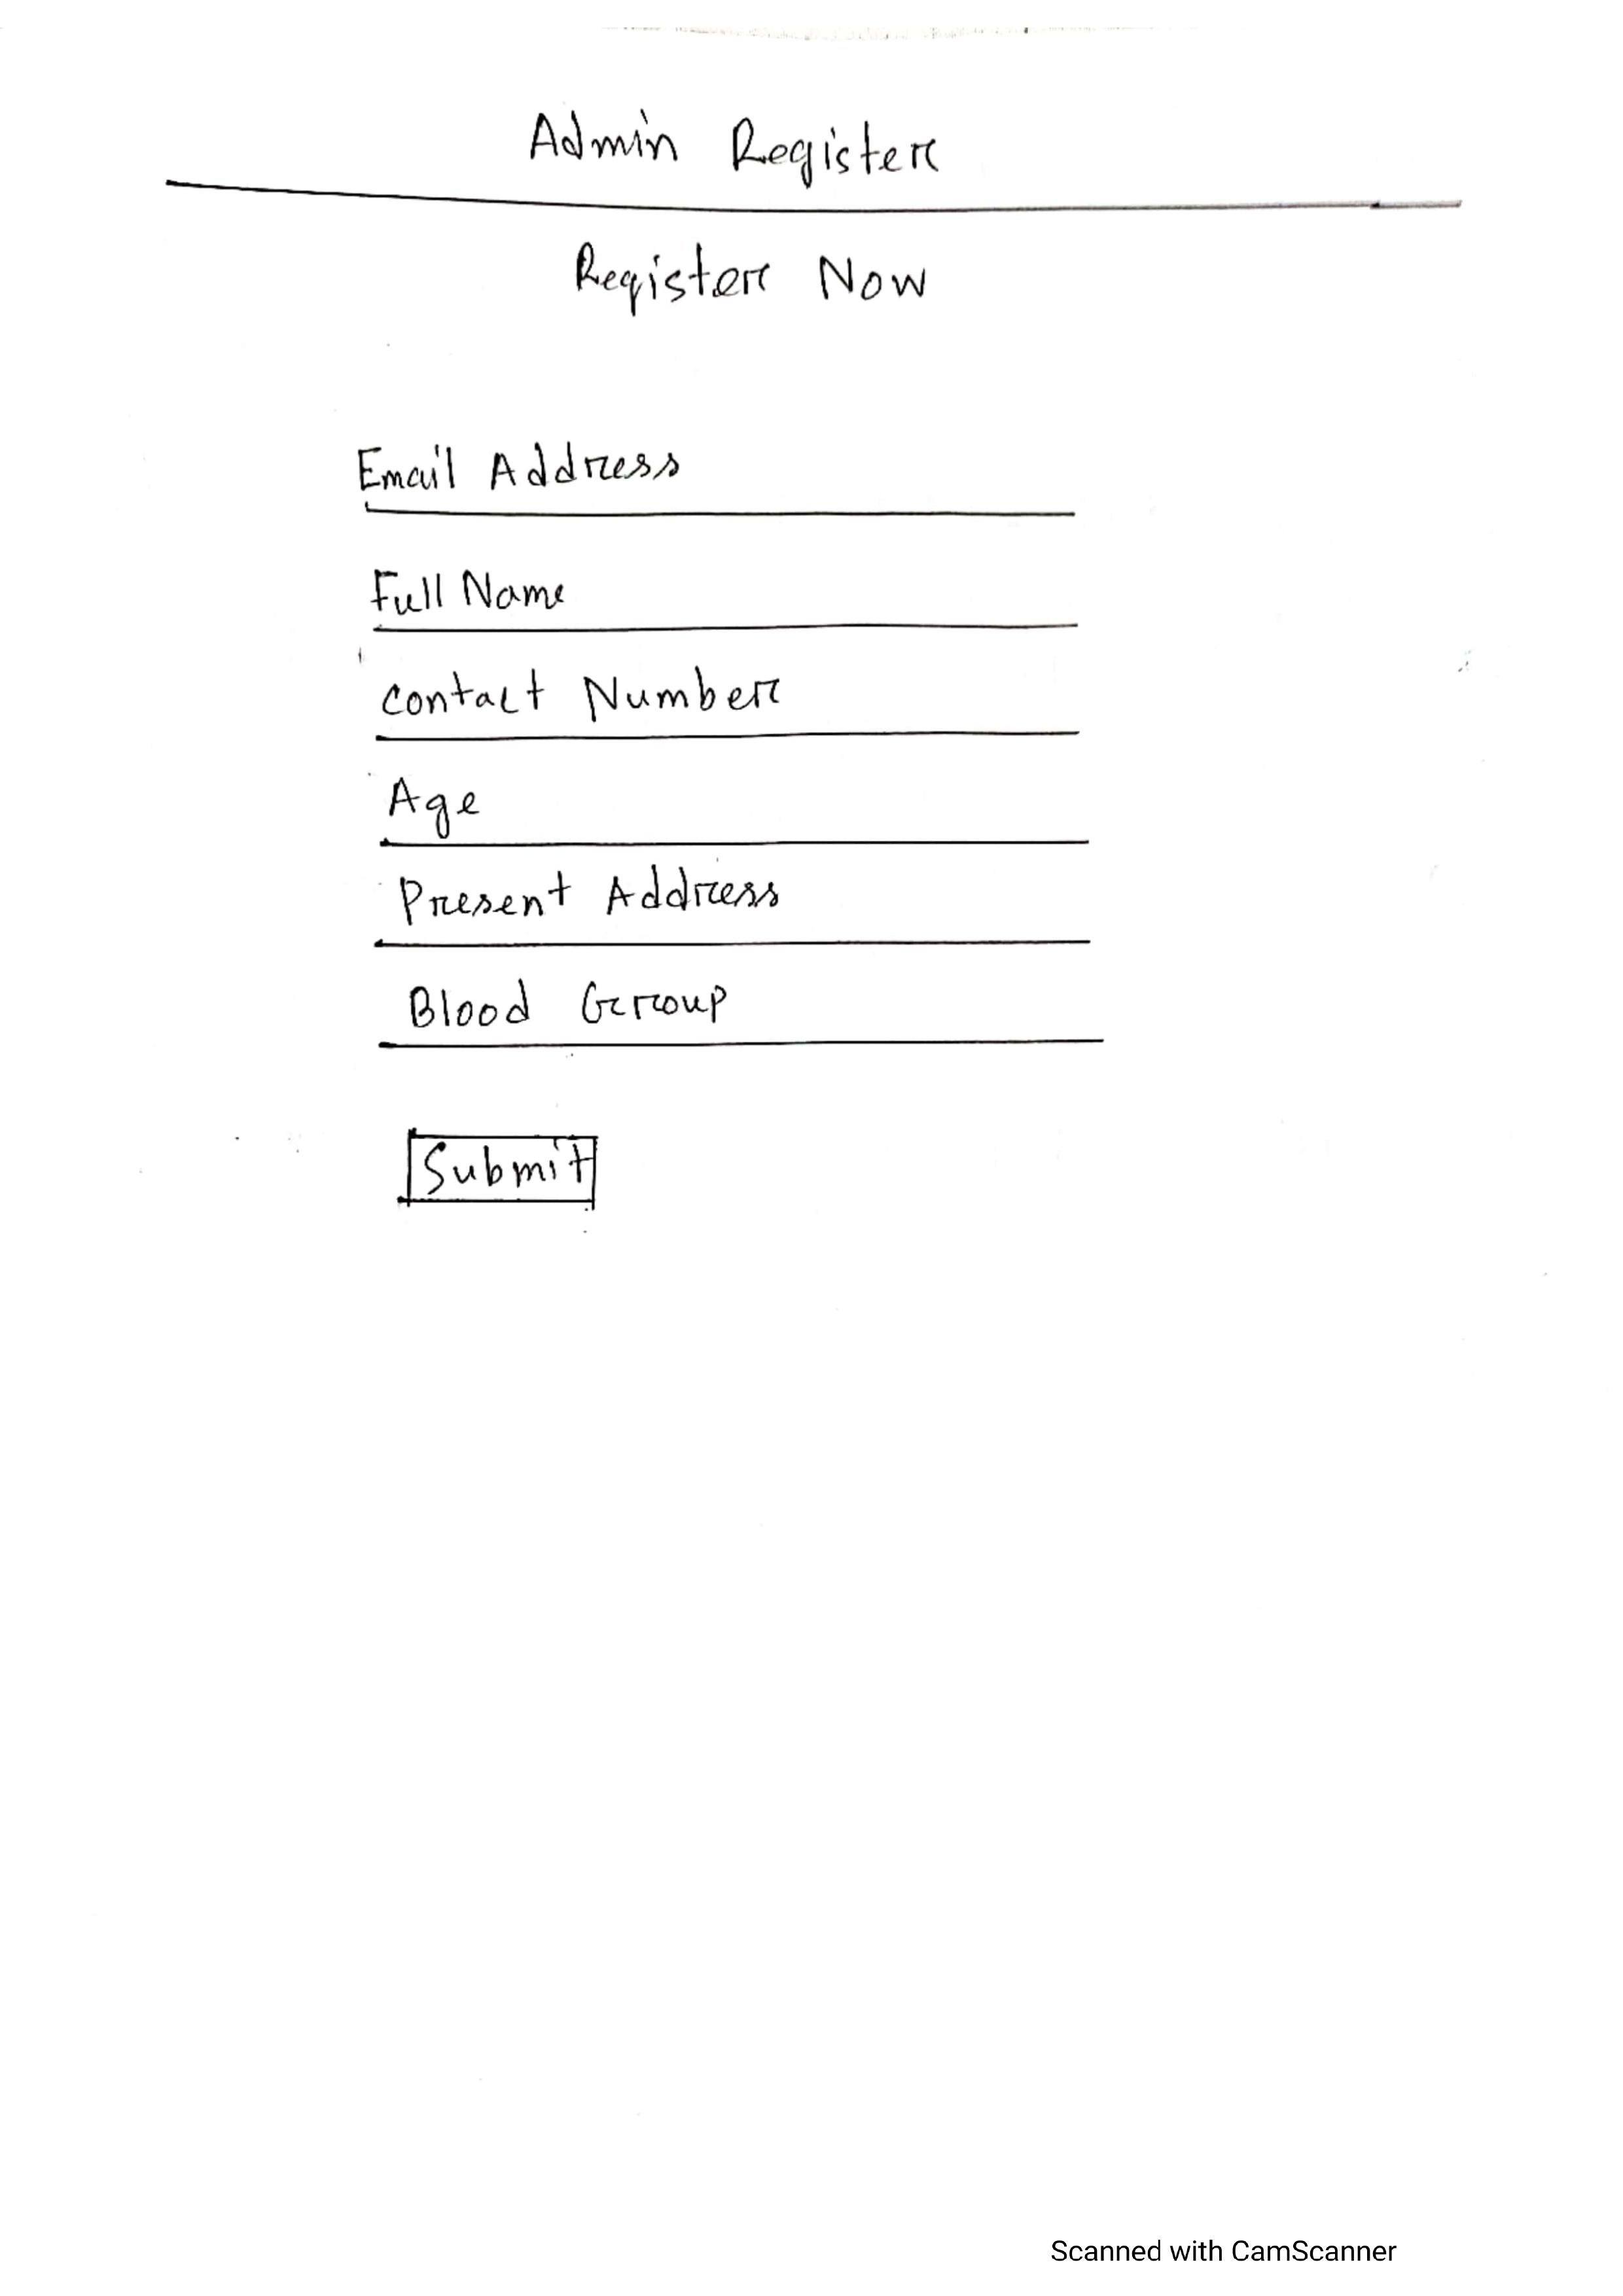 Admin Register
Register Now
Email Address
Full Name
contact Number
Age
Present Address
Blood Group
Submit
Scanned with CamScanner